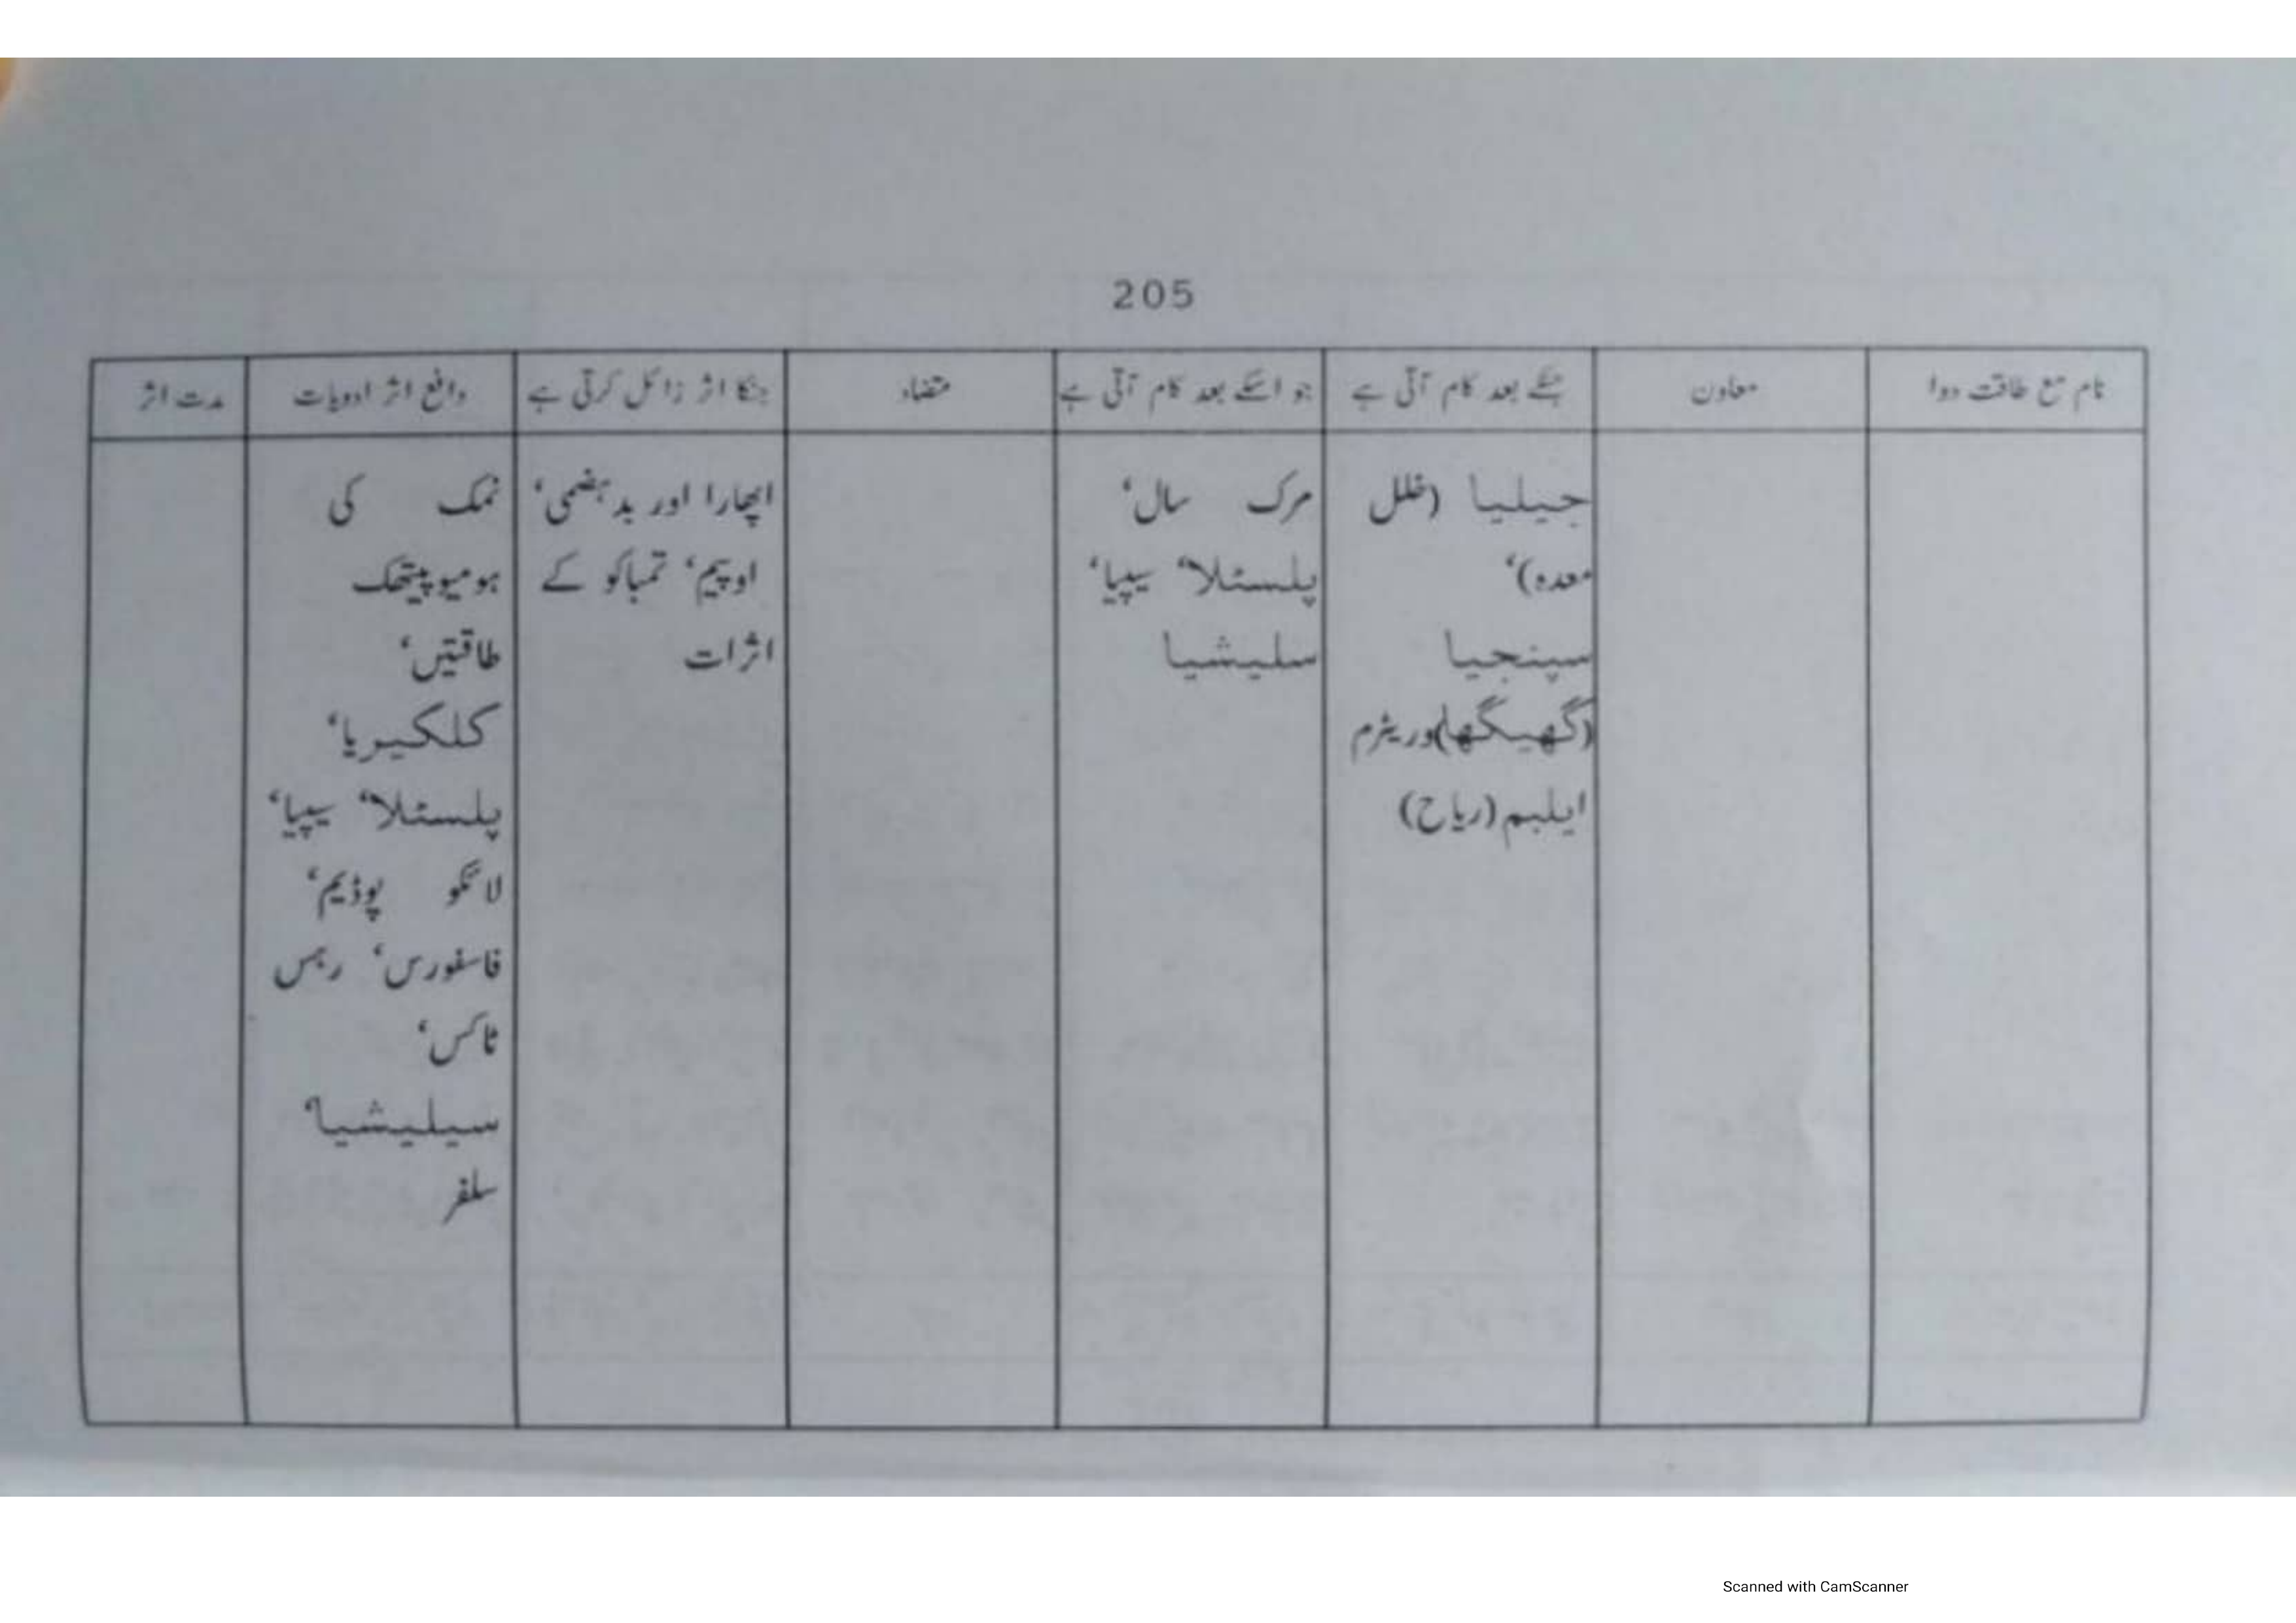 205
نام مع طاقت دوا | معاون | جسکے بعد کام آتی ہے | جو اسکے بعد کام آتی ہے | متضاد | جنکا اثر زائل کرتی ہے | دافع اثر ادویات | مدت اثر
جیلیا (خلل
معدہ)،
سپنجیا
(گھیگھا)وریٹرم
ایلبم(ریاح)
مرک سال،
پلسٹلا، سیپیا،
سلیشیا
اپھارا اور بدہضمی،
اوپیم، تمباکو کے
اثرات
نمک کی
ہومیوپیتھک
طاقتیں،
کلکیریا،
پلسٹلا، سیپیا،
لائکو پوڈیم،
فاسفورس، رہس
ٹاکس،
سیلیشیا،
سلفر
Scanned with CamScanner